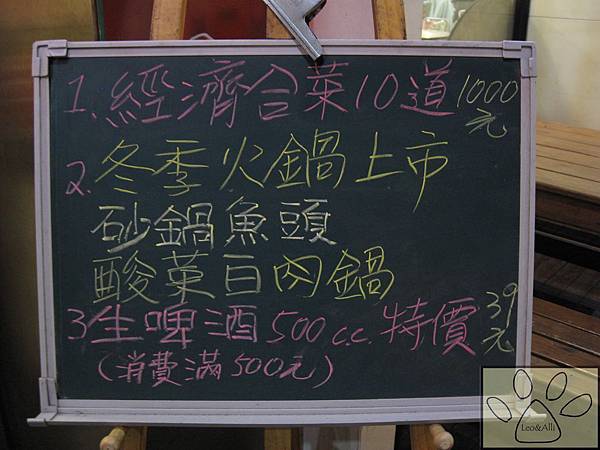 1. 經濟合菜10道 1000元
2. 冬季火鍋上市
砂鍋魚頭
酸菜白肉鍋
3 生啤酒 500 c.c. 特價 39元
(消費滿500元)
Leo&Alli